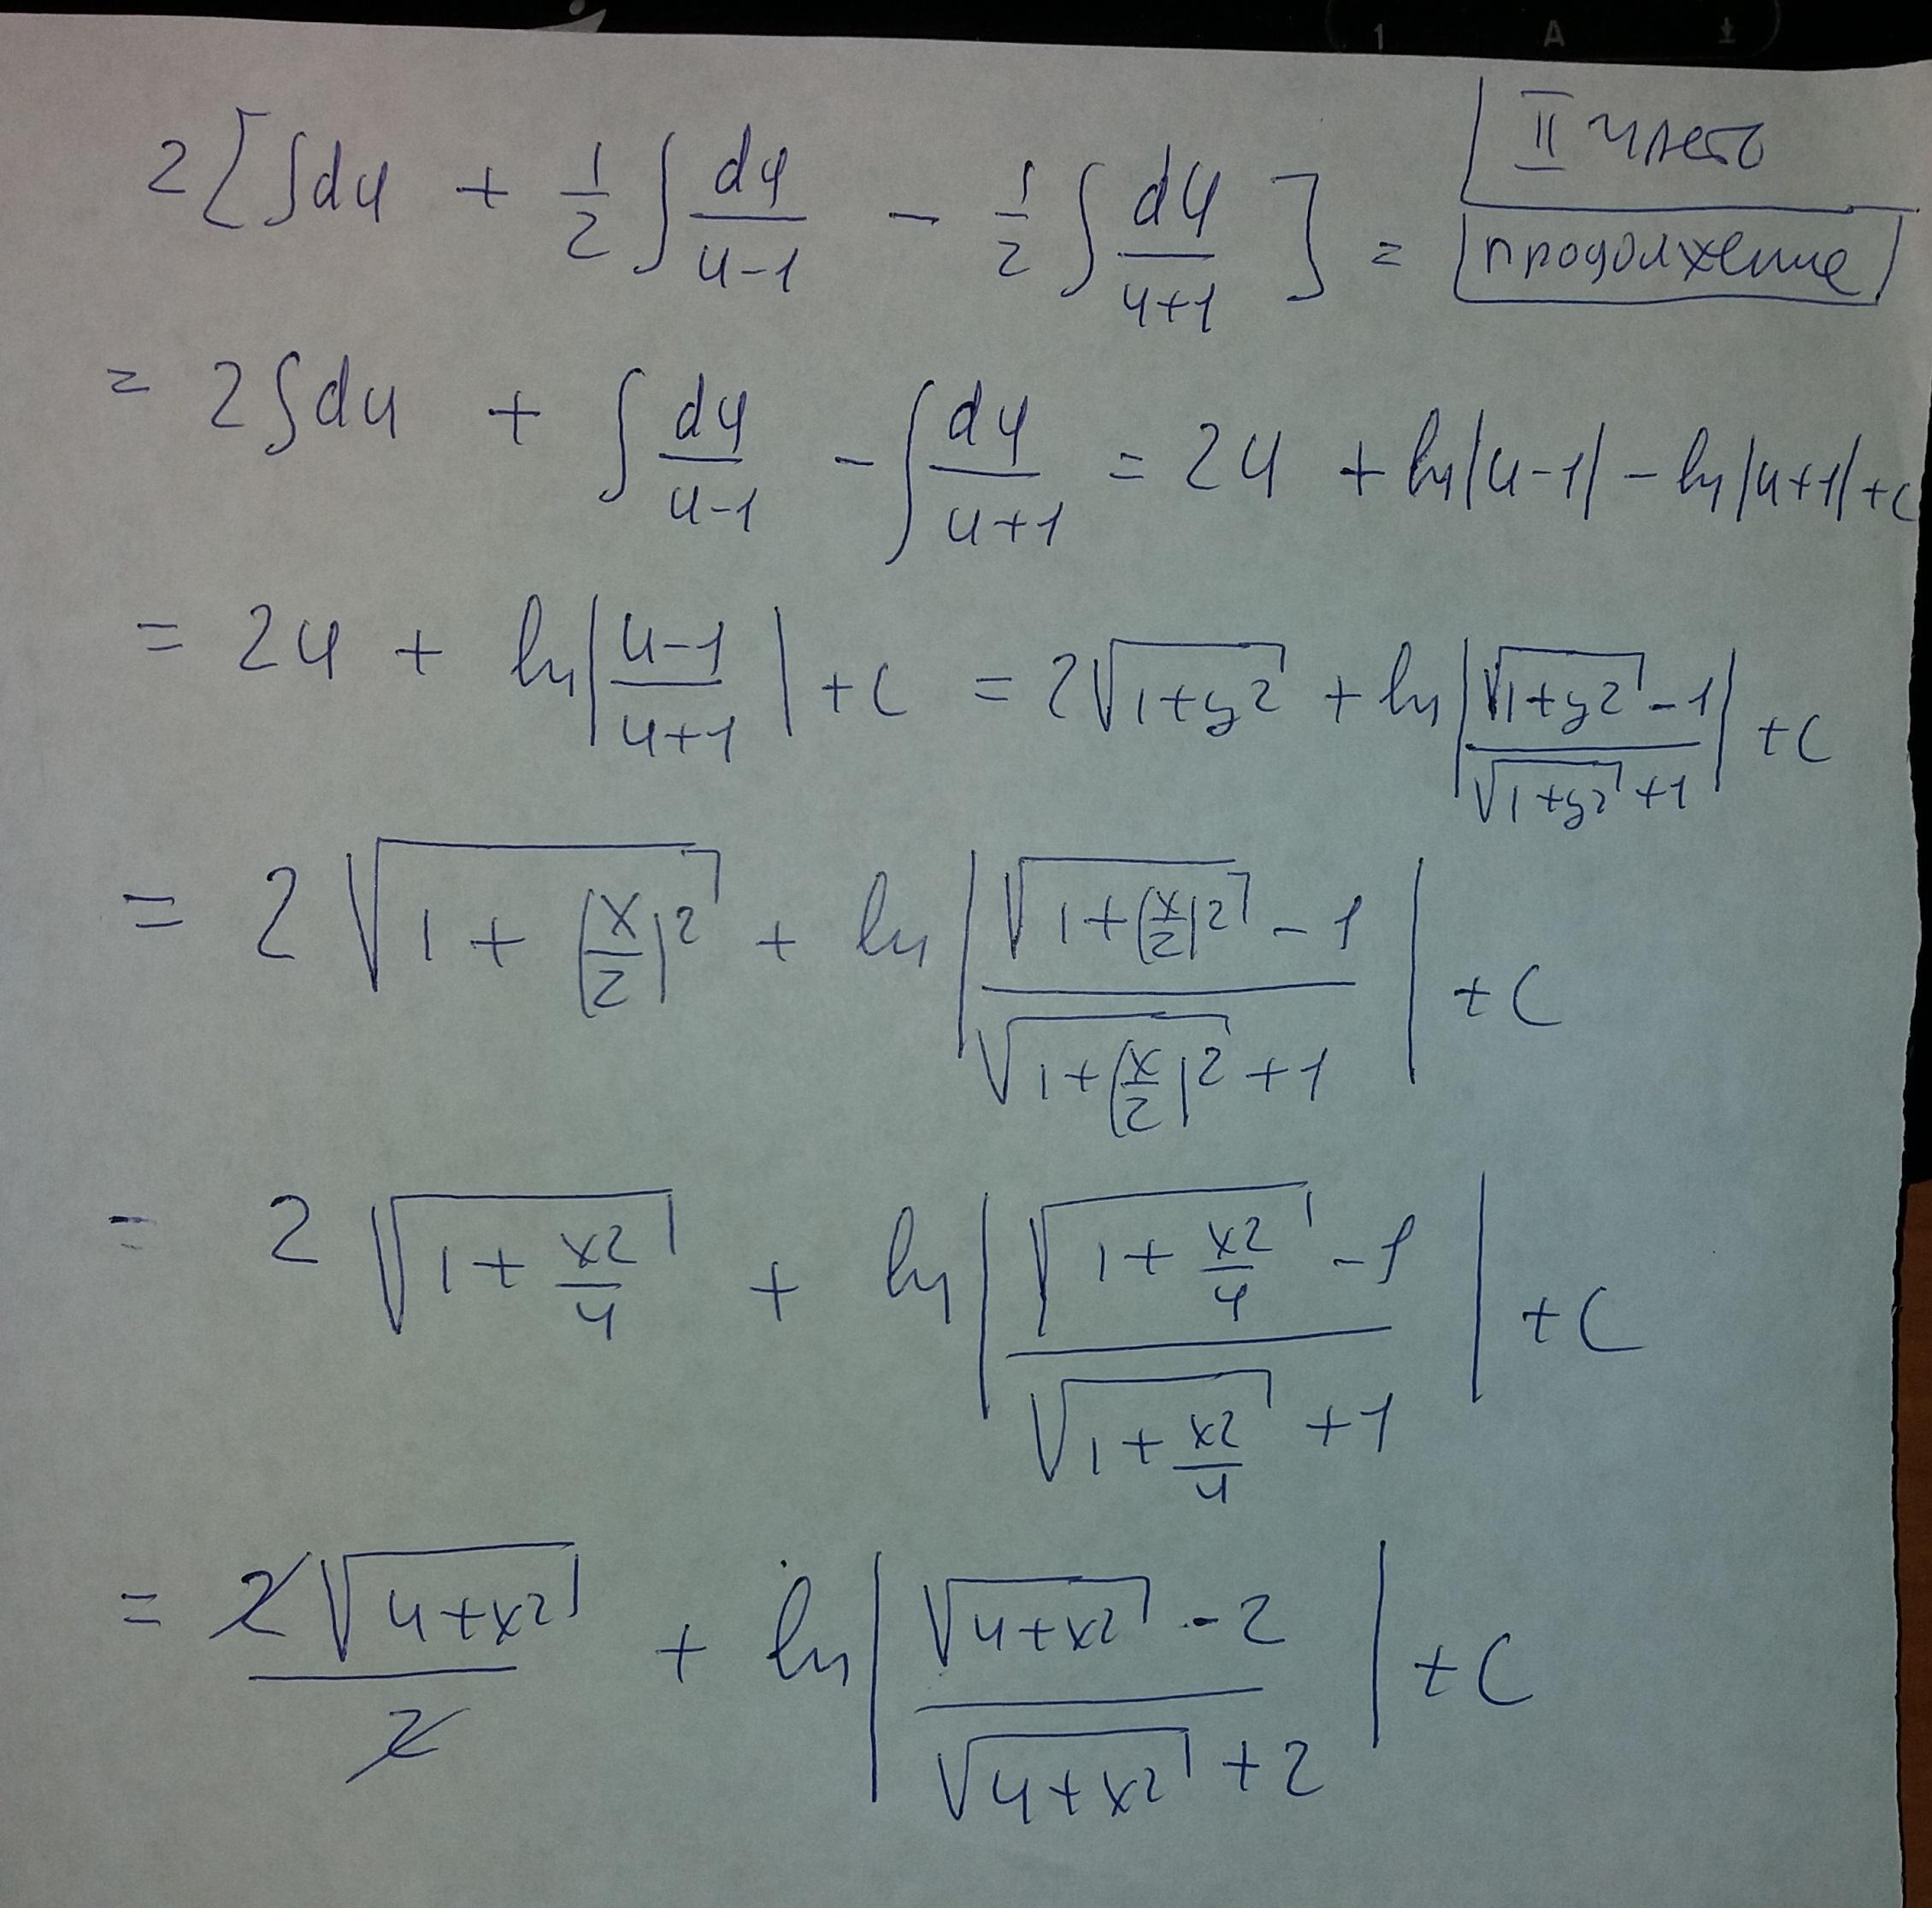 1 A
2[∫du + 1/2 ∫ du/(u-1) - 1/2 ∫ du/(u+1)] =
II часть
продолжение
= 2∫du + ∫ du/(u-1) - ∫ du/(u+1) = 2u + ln|u-1| - ln|u+1| + c
= 2u + ln|(u-1)/(u+1)| + c = 2√(1+y²) + ln|(√(1+y²) - 1)/(√(1+y²) + 1)| + c
= 2√(1 + (x/2)²) + ln|(√(1+(x/2)²) - 1)/(√(1+(x/2)²) + 1)| + c
= 2√(1 + x²/4) + ln|(√(1 + x²/4) - 1)/(√(1 + x²/4) + 1)| + c
= 2√(4+x²)/2 + ln|(√(4+x²) - 2)/(√(4+x²) + 2)| + c